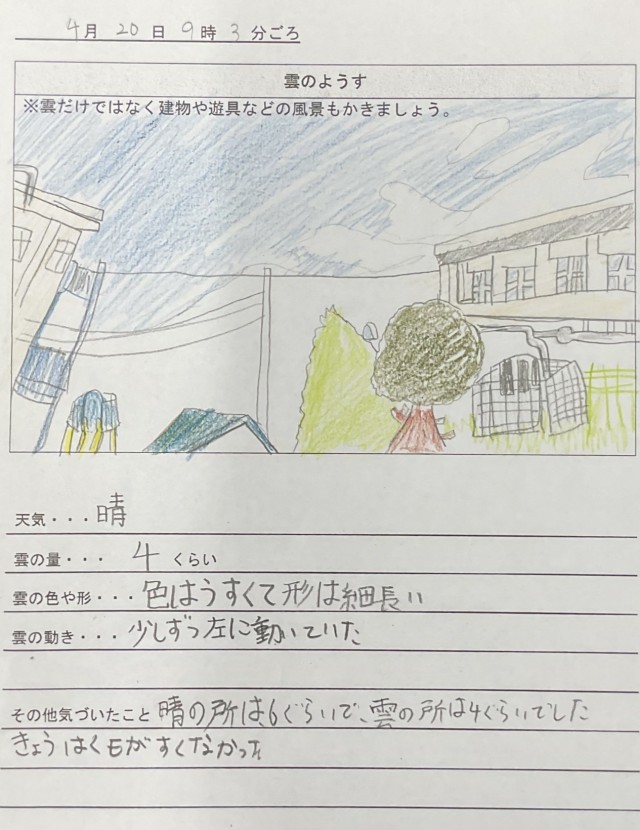 4月 20 日 9時 3分ごろ
雲のようす
※雲だけではなく建物や遊具などの風景もかきましょう。
天気・・・晴
雲の量・・・ 4 くらい
雲の色や形・・・色はうすくて形は細長い
雲の動き・・・少しずつ左に動いていた
その他気づいたこと 晴の所は6ぐらいで、雲の所は4ぐらいでした
きょうはくもがすくなかった